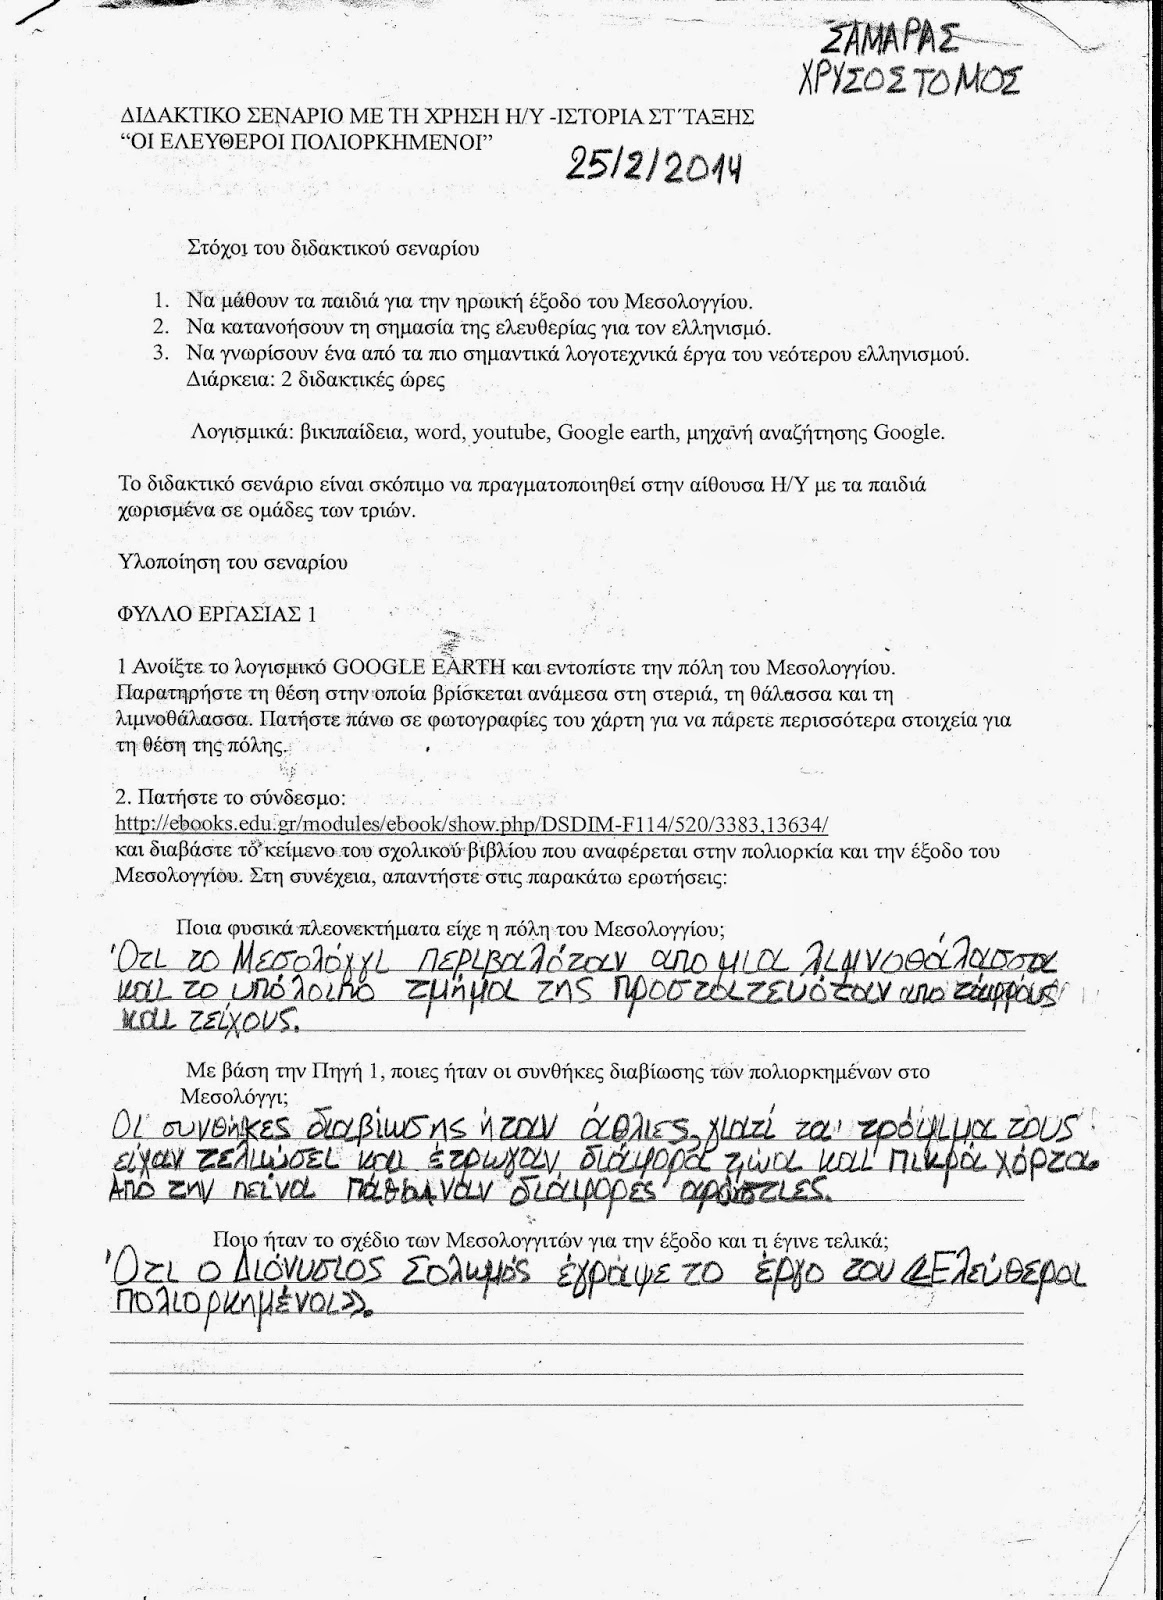 ΣΑΜΑΡΑΣ
ΧΡΥΣΟΣΤΟΜΟΣ
ΔΙΔΑΚΤΙΚΟ ΣΕΝΑΡΙΟ ΜΕ ΤΗ ΧΡΗΣΗ Η/Υ -ΙΣΤΟΡΙΑ ΣΤ΄ΤΑΞΗΣ
“ΟΙ ΕΛΕΥΘΕΡΟΙ ΠΟΛΙΟΡΚΗΜΕΝΟΙ”
25/2/2014
Στόχοι του διδακτικού σεναρίου
1. Να μάθουν τα παιδιά για την ηρωική έξοδο του Μεσολογγίου.
2. Να κατανοήσουν τη σημασία της ελευθερίας για τον ελληνισμό.
3. Να γνωρίσουν ένα από τα πιο σημαντικά λογοτεχνικά έργα του νεότερου ελληνισμού.
Διάρκεια: 2 διδακτικές ώρες
Λογισμικά: βικιπαίδεια, word, youtube, Google earth, μηχανή αναζήτησης Google.
Το διδακτικό σενάριο είναι σκόπιμο να πραγματοποιηθεί στην αίθουσα Η/Υ με τα παιδιά
χωρισμένα σε ομάδες των τριών.
Υλοποίηση του σεναρίου
ΦΥΛΛΟ ΕΡΓΑΣΙΑΣ 1
1 Ανοίξτε το λογισμικό GOOGLE EARTH και εντοπίστε την πόλη του Μεσολογγίου.
Παρατηρήστε τη θέση στην οποία βρίσκεται ανάμεσα στη στεριά, τη θάλασσα και τη
λιμνοθάλασσα. Πατήστε πάνω σε φωτογραφίες του χάρτη για να πάρετε περισσότερα στοιχεία για
τη θέση της πόλης.
2. Πατήστε το σύνδεσμο:
http://ebooks.edu.gr/modules/ebook/show.php/DSDIM-F114/520/3383,13634/
και διαβάστε το κείμενο του σχολικού βιβλίου που αναφέρεται στην πολιορκία και την έξοδο του
Μεσολογγίου. Στη συνέχεια, απαντήστε στις παρακάτω ερωτήσεις:
Ποια φυσικά πλεονεκτήματα είχε η πόλη του Μεσολογγίου;
Ότι το Μεσολόγγι περιβαλόταν απο μια λιμνοθάλασσα
και το υπόλοιπο τμήμα της προστατευόταν απο τάφρους
και τείχους.
Με βάση την Πηγή 1, ποιες ήταν οι συνθήκες διαβίωσης των πολιορκημένων στο
Μεσολόγγι;
Οι συνθήκες διαβίωσης ήταν άθλιες, γιατί τα τρόφιμα τους
είχαν τελιώσει και έτρωγαν διάφορα ζώα και πικρά χόρτα.
Από την πείνα πάθαιναν διάφορες αρώστιες.
Ποιο ήταν το σχέδιο των Μεσολογγιτών για την έξοδο και τι έγινε τελικά;
Ότι ο Διόνυσιος Σολωμός έγραψε το έργο του «Ελεύθεροι
πολιορκημένοι».